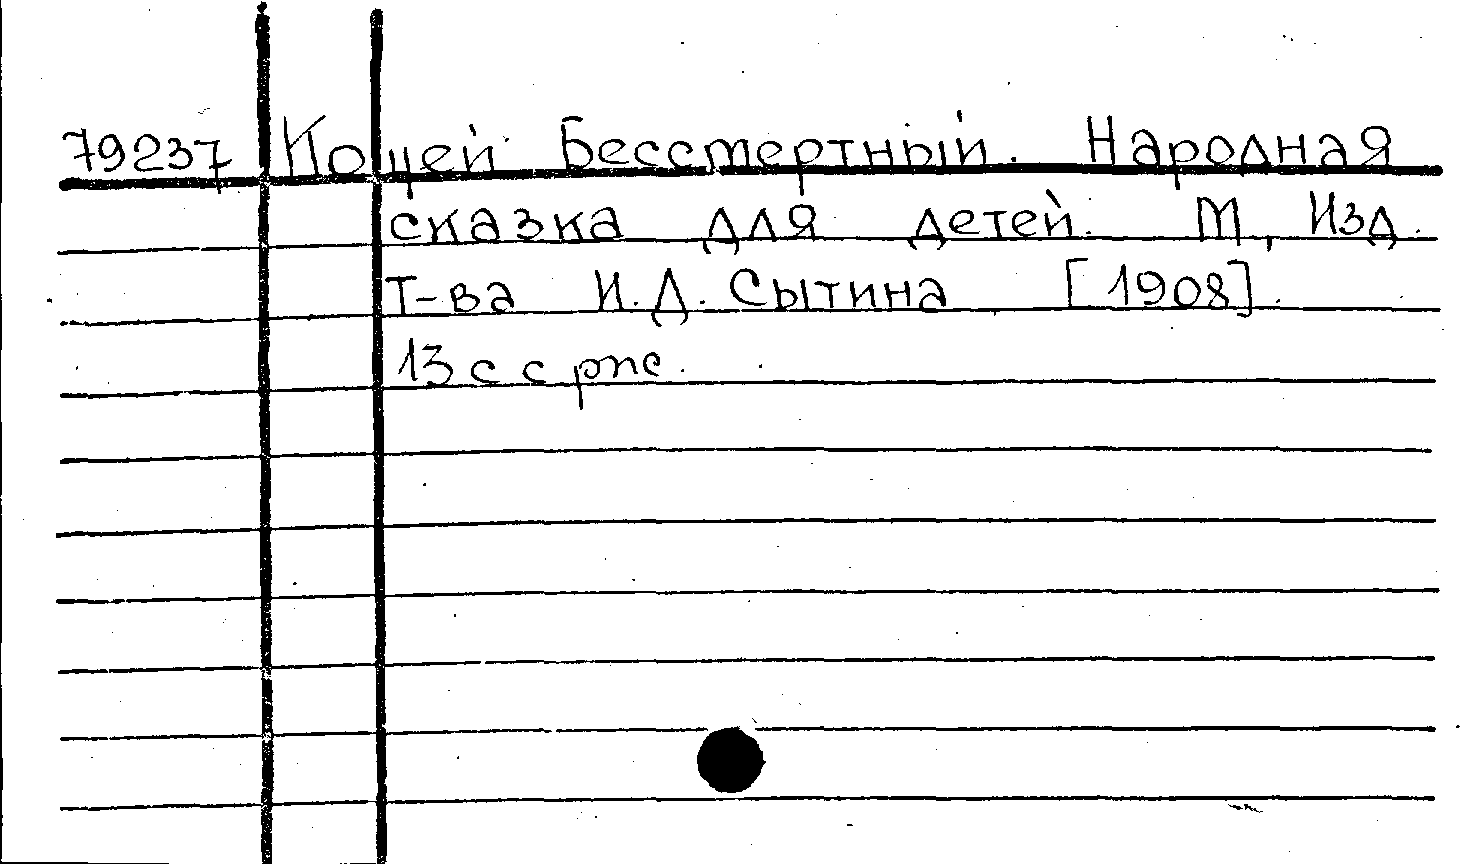 79237 Кощей Бессмертный. Народная
сказка для детей. М, Изд.
Т-ва И.Д. Сытина [1908].
13 с с рис.